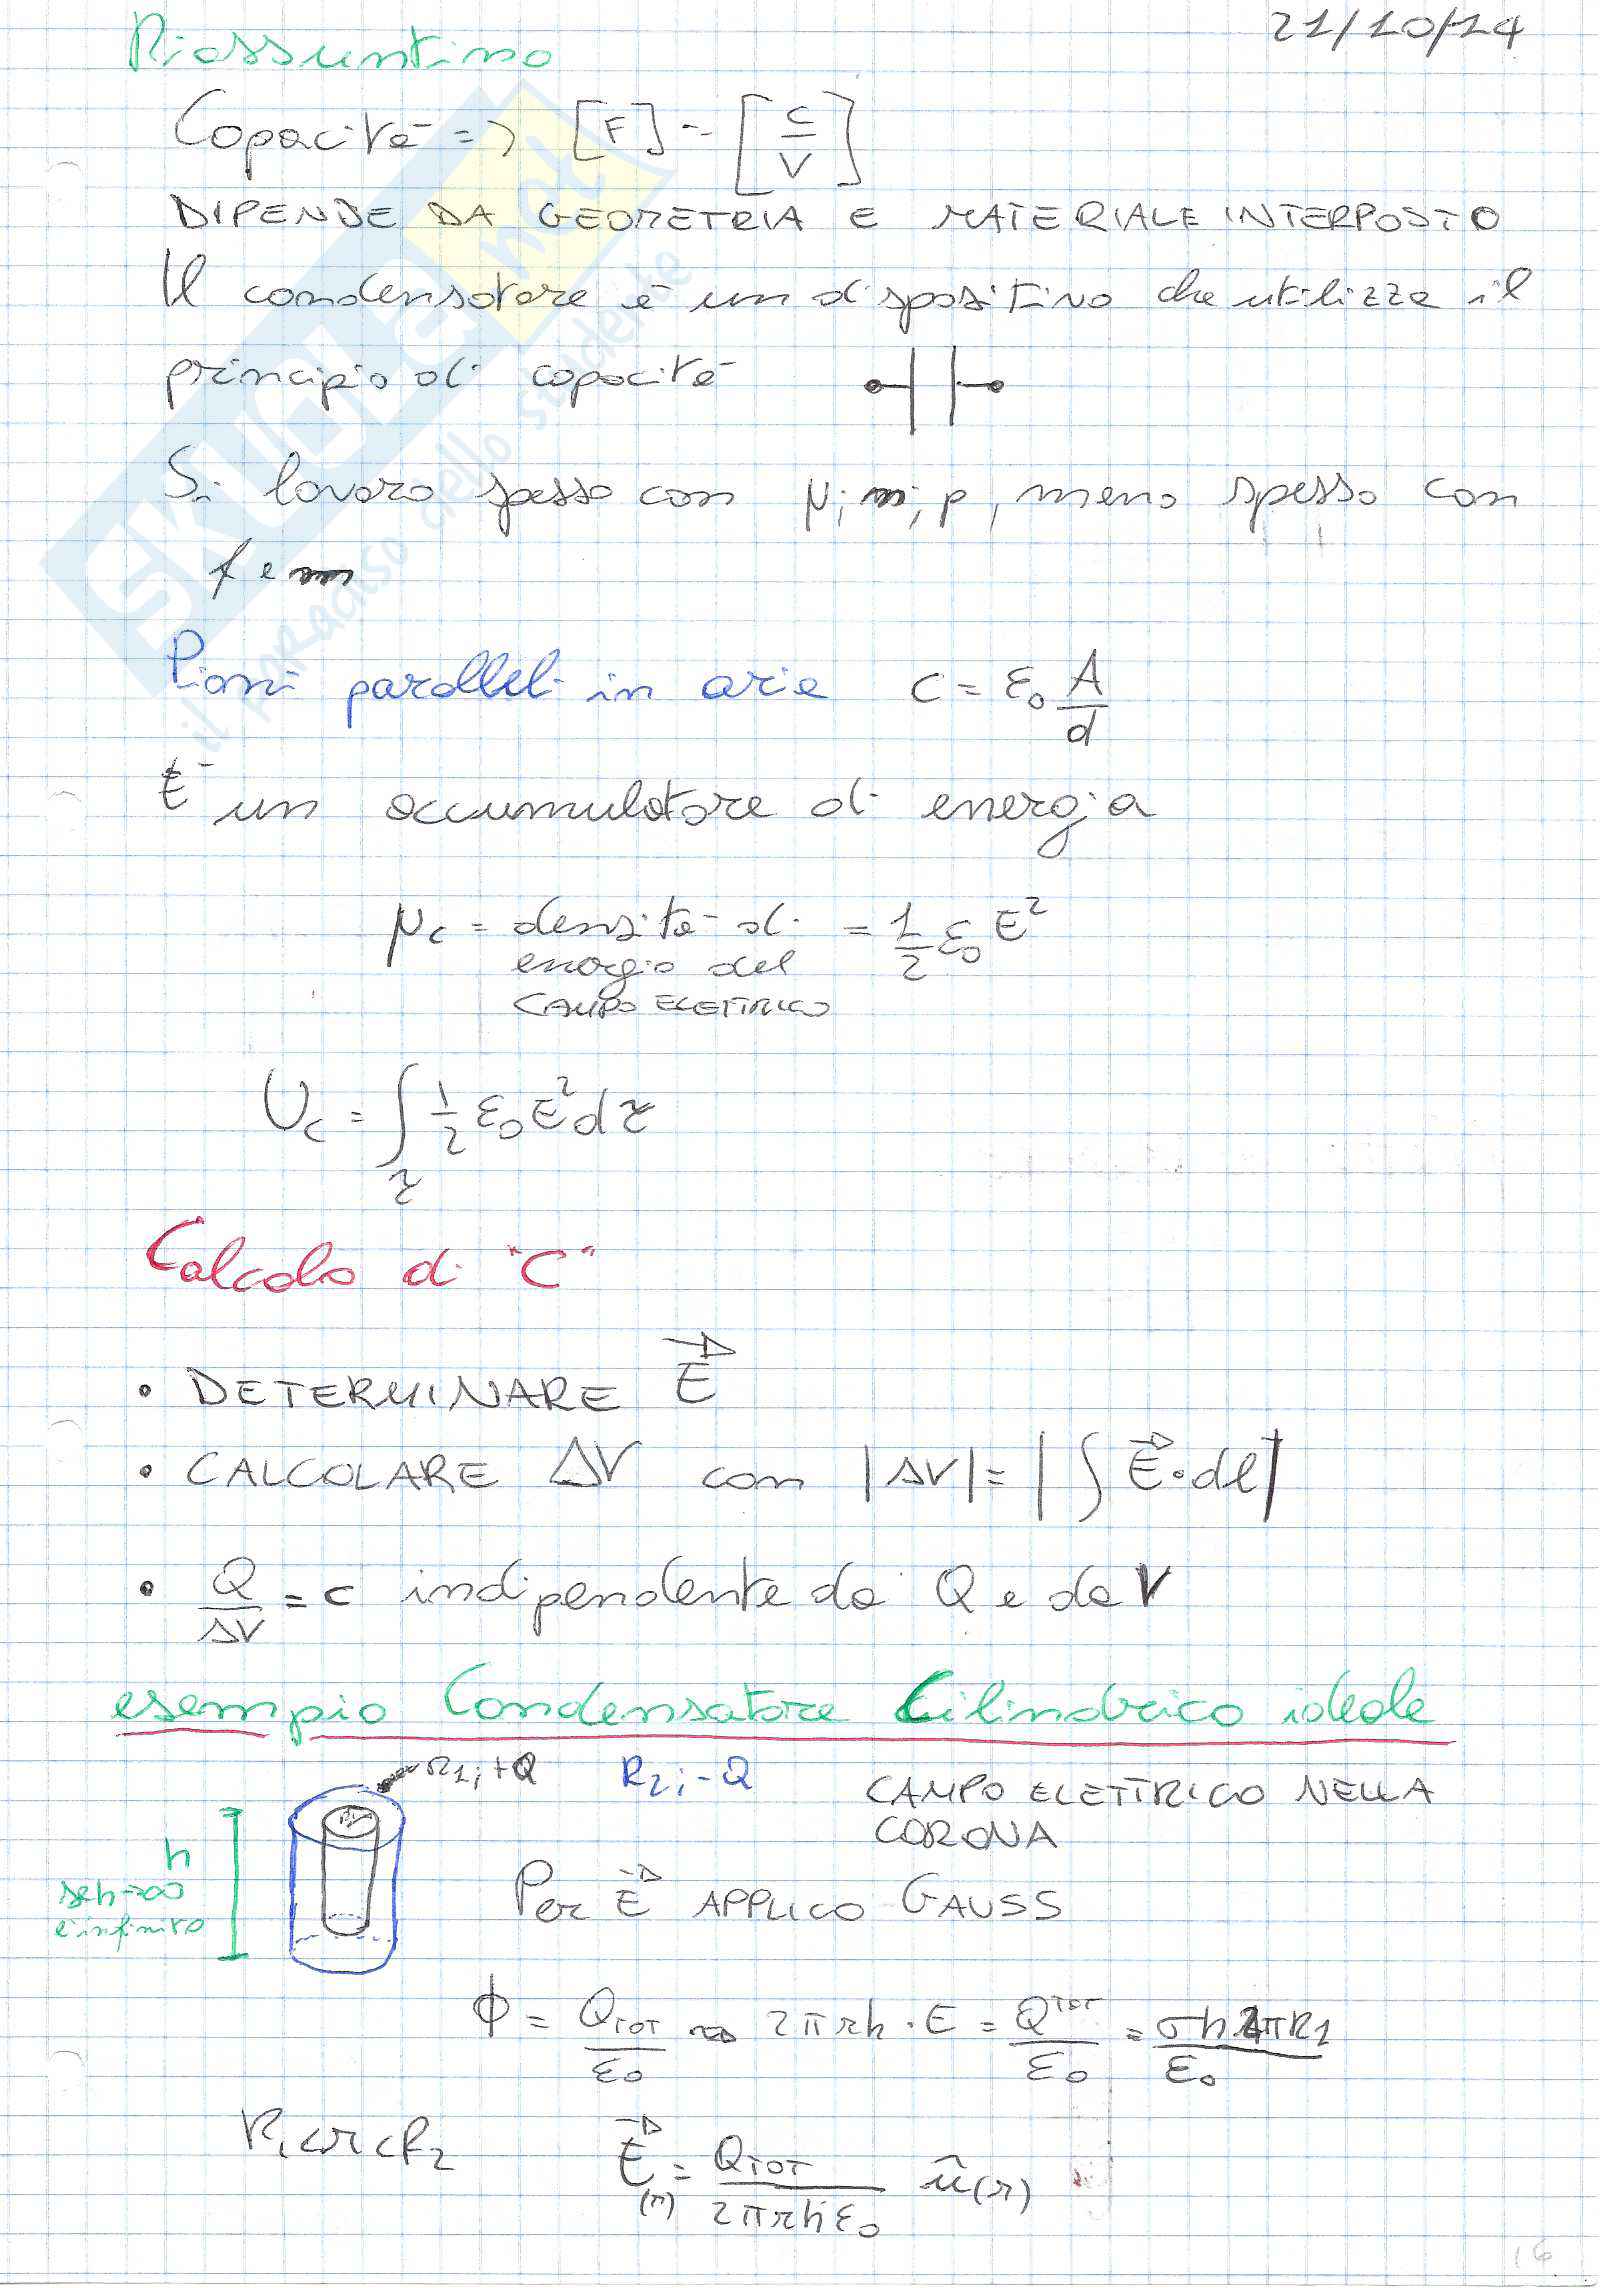 21/10/14
Riassuntino
Capacità => [F] = [C/V]
DIPENDE DA GEOMETRIA E MATERIALE INTERPOSTO
Il condensatore è un dispositivo che utilizza il
principio di capacità
Si lavora spesso con μ, n, p, meno spesso con
f e m
Piani paralleli in aria C = ε₀ A/d
È un accumulatore di energia
μc = densità di energia del CAMPO ELETTRICO = 1/2 ε₀ E²
Uc = ∫τ 1/2 ε₀ E² dτ
Calcolo di "C"
• DETERMINARE E⃗
• CALCOLARE ΔV con |ΔV| = |∫ E⃗ · dl|
• Q/ΔV = C indipendente da Q e da V
esempio Condensatore Cilindrico ideale
R1; +Q R2; -Q CAMPO ELETTRICO NELLA
CORONA
h
se h→∞
è infinito
Per E⃗ APPLICO GAUSS
Φ = QTOT/ε₀ → 2πrh · E = QTOT/ε₀ = σh2πR1/ε₀
R₁<r<R₂ E⃗(r) = QTOT/2πrhε₀ û(r)
16
SKUOLA.net
il paradiso dello studente